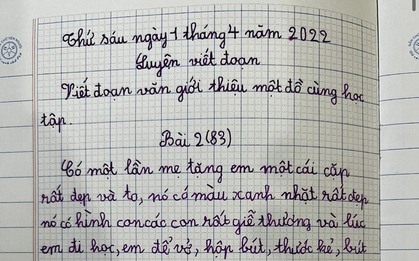 Thứ sáu ngày 1 tháng 4 năm 2022
Luyện viết đoạn
Viết đoạn văn giới thiệu một đồ cùng học
tập.
Bài 2 (83)
Có một lần mẹ tăng em một cái cặp
rất đẹp và to, nó có màu xanh nhặt rất đẹp
nó có hình con các con rất giễ thương và lúc
em đi học, em để vở, hộp bút, thước kẻ, bút